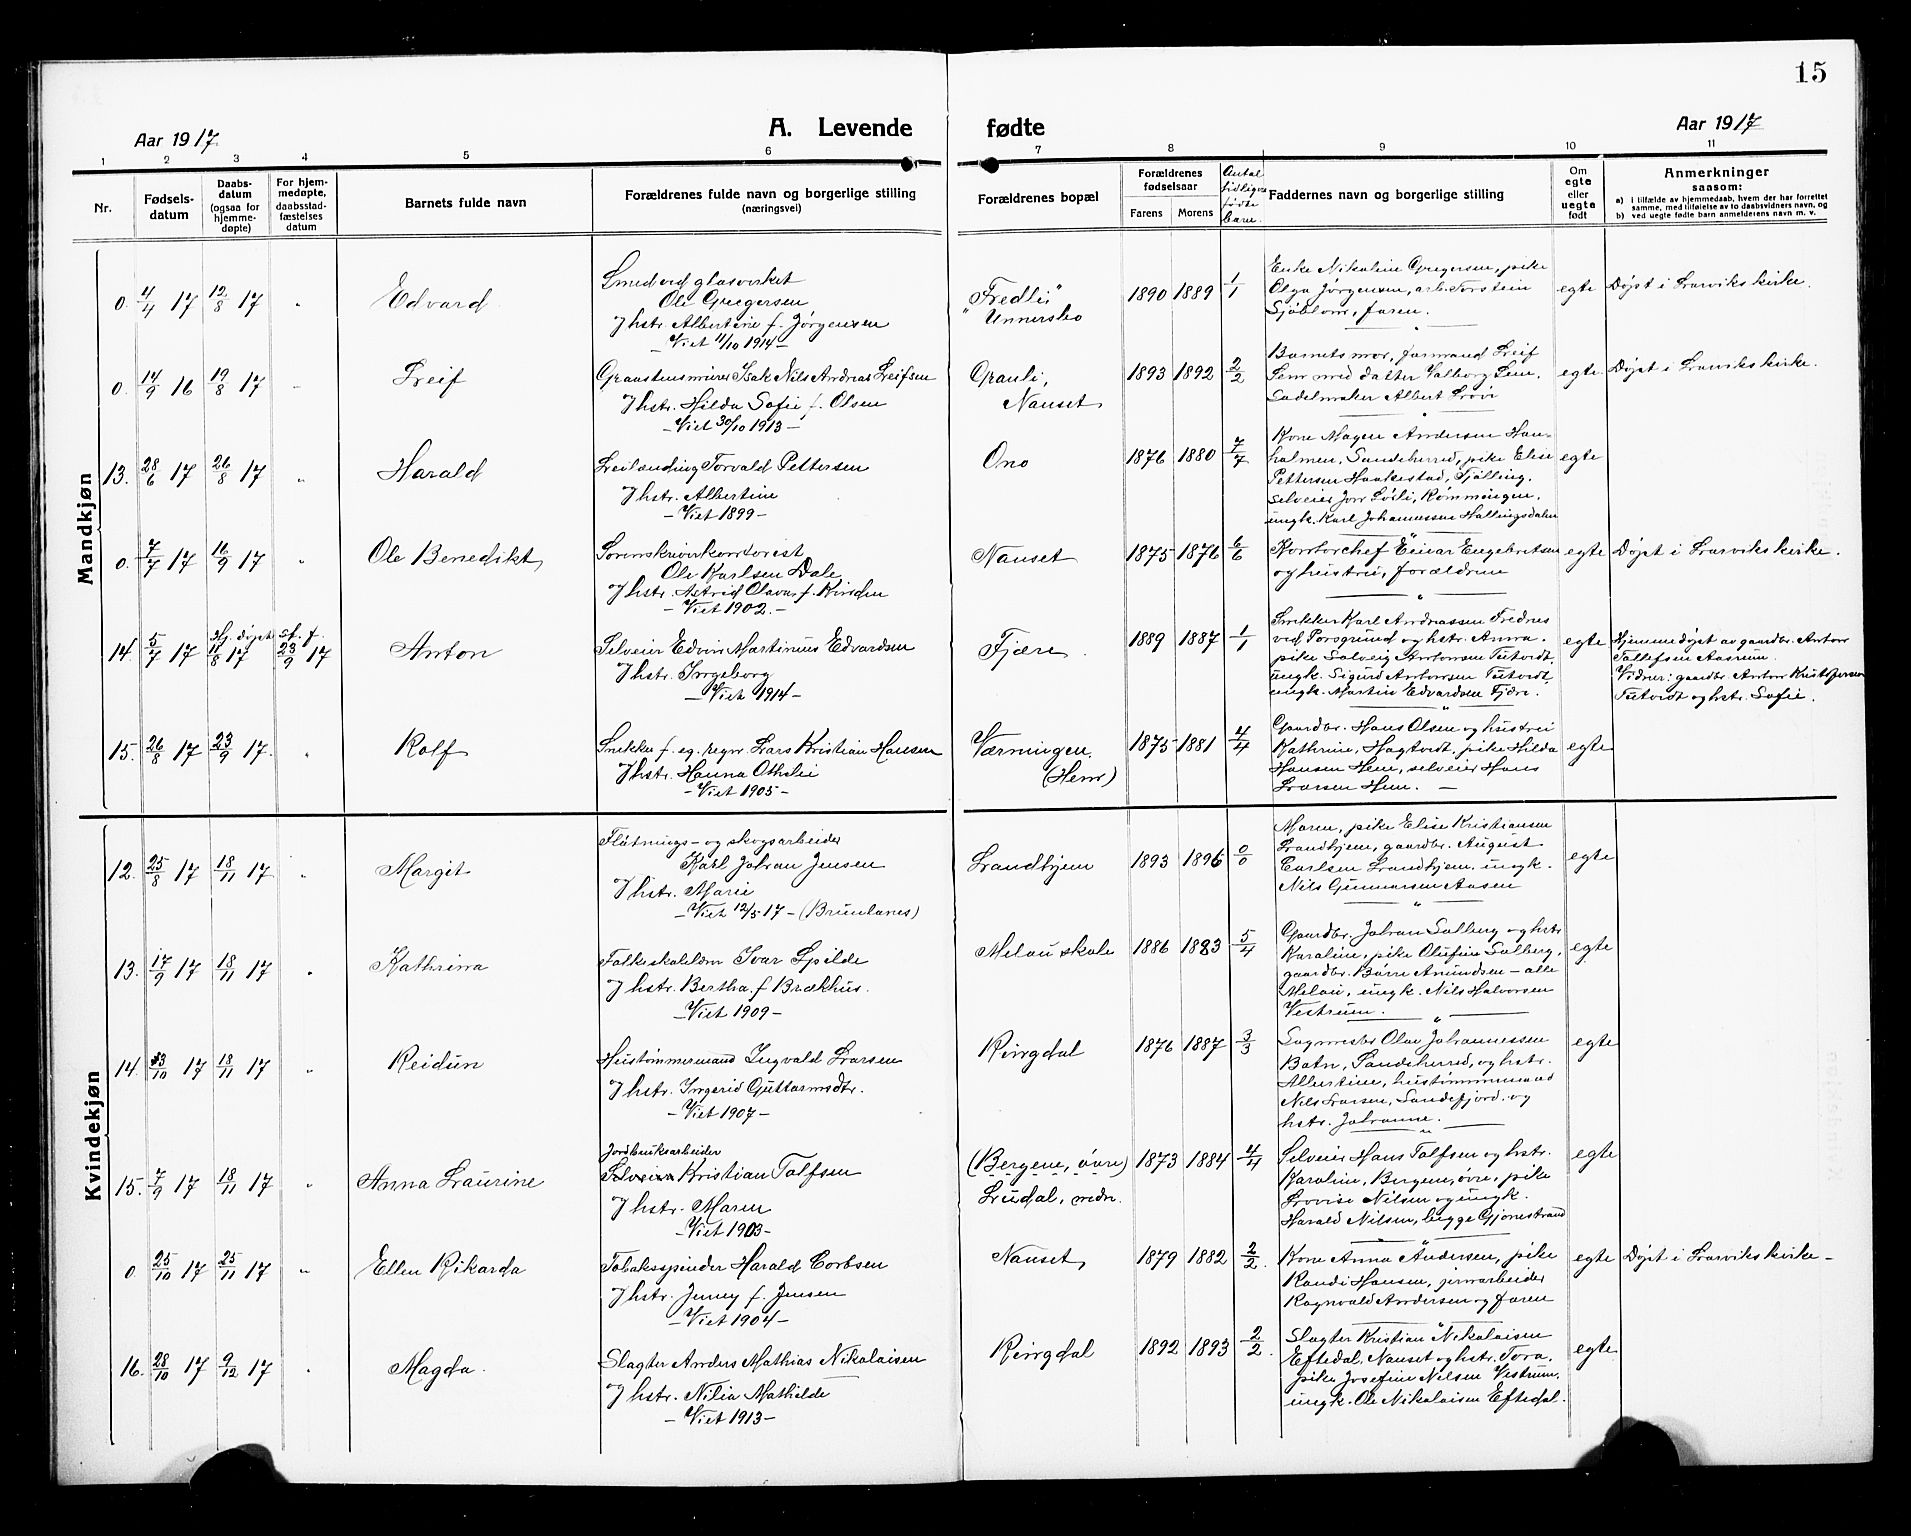 15
Aar 1917.
A. Levende fødte
Aar 1917
1 2 3 4 5 6 7 8 9 10 11
Nr.
Fødsels-
datum
Daabs-
datum
(ogsaa for
hjemme-
døpte)
For hjem-
medøpte,
daabsstad-
fæstelses
datum
Barnets fulde navn
Forældrenes fulde navn og borgerlige stilling
(næringsvei)
Forældrenes bopæl
Forældrenes
fødselsaar
Farens
Morens
Antal
tidligere
fødte
barn.
Faddernes navn og borgerlige stilling
Om
egte
eller
uegte
født
Anmerkninger
saasom:
a) i tilfælde av hjemmedaab, hvem der har forrettet
samme, med tilføielse av to daabsvidners navn, og
b) ved uegte fødte barn anmelderens navn m. v.
Mandkjøn
0. 4/4 17 12/8 17 " Edvard
Smed ved glasverket
Ole Gregersen
Ihstr. Albertine f. Jørgensen
- Viet 11/10 1914 -
"Fredli"
Unnersbo
1890 1889 1/1
Enke Nikoline Gregersen, pike
Olga Jørgensen, arb. Torstein
Sjøblom, faren.
egte Døpt i Larviks kirke.
0. 14/9 16 19/8 17 " Leif
Graastensmurer Isak Nils Andreas Leifsen
Ihstr. Hilda Sofie f. Olsen
- Viet 30/10 1913 -
Granli,
Nanset
1893 1892 2/2
Barnets mor, formand Leif
Lem med datter Valborg Lem.
Sadelmaker Albert Lövi
egte. Døpt i Larviks kirke.
13. 28/6 17 26/8 17 " Harald
Leilænding Torvald Pettersen
Ihstr. Albertine
- Viet 1899 -
Ono
1876 1880 7/7
Kone Magen Andersen Han-
holmen, Sandeherred, pike Elise
Pettersen Haakestad, Tjølling,
selveier Jon Lösli, Rømmingen,
ungk. Karl Johannessen Hallingsdalen
egte
0. 7/7 17 16/9 17 " Ole Benedikt
Sorenskriverkontorist
Ole Karlsen Dale
Ihstr. Astrid Olava f.
- Viet 1902. -
Nanset
1875 1876 6/6
Kontorchef Einar Engebretsen
og hustru, forældrene
egte Døpt i Larviks kirke.
14. 5/7 17 Hj. døpt 11/8 17 st. f. 23/9 17 Anton
Selveier Edvin Martinius Edvardsen
Ihstr. Ingeborg
- Viet 1914 -
Fjære
1889 1887 1/1
Snekker Karl Andreassen Frednes
ved Porsgrund og hstr. Anna.
pike Solveig Antonsen Tutvedt,
ungk. Sigurd Antonsen Tutvedt,
ungk. Martin Edvardsen Fjære.
egte Hjemmedøpt av gaardbr. Anton
Tollefsen Aasrum.
Vidner: gaardbr. Anton Kristofersen
Tutvedt og hstr. Sofie.
15. 26/8 17 23/9 17. " Rolf
Snekker f. eg. regn. Lars Kristian Hansen
Ihstr. Hanna Othelie
- Viet 1905 -
Værmingen
(Hem)
1875 1881 4/4
Gaardbr. Hans Olsen og hustru
Kathrine, Hagtvedt, pike Hilda
Hansen Hem, selveier Hans
Larsen Hem. -
egte
Kvindekjøn
12. 25/8 17 18/11 17 " Margit
Fløtnings- og skogsarbeider
Karl Johan Jensen
Ihstr. Marie
- Viet 12/5 17 - (Brunlanes)
Landbjem
1893 1896 0/0
Moren, pike Elise Kristiansen
Landbjem, gaardbr. August
Carlsen Landbjem, ungk.
Nils Gunnarsen Aasen
egte
13. 17/9 17 18/11 17 " Kathrina
Folkeskolelærer Ivar Spilde
Ihstr. Bertha f. Brækhus.
- Viet 1909 -
Melau skole
1886 1883 5/4
Gaardbr. Johan Solberg og hstr.
Karoline, pike Olufine Solberg,
gaardbr. Börre Amundsen - alle
Melau, ungk. Nils Halvorsen
Vestrum.
egte
14. 3/10 17 18/11 17 " Reidun
Hustømmermand Ingvald Larsen
Ihstr. Ingerid Guttormsdtr.
- Viet 1907 -
Ringdal
1876 1887 3/3
Sagmester Olav Johannessen
Botn, Sandeherred, og hstr.
Albertine, hustømmermand
Nils Larsen, Sandefjord, og
hstr. Johanne.
egte
15. 7/9 17 18/11 17 " Anna Laurine
Jordbruksarbeider
Selveier Kristian Tolfsen
Ihstr. Maren
- Viet 1903 -
(Bergene, øvre)
Ludal, nedr.
1873 1884 4/4
Selveier Hans Tolfsen og hstr.
Karoline, Bergene, øvre, pike
Lovise Nilsen og ungk.
Harald Nilsen, begge Gjønestrand
egte
0. 25/10 17 25/11 17 " Ellen Rikarda
Tobaksspinder Harald Corbsen
Ihstr. Jenny f. Jensen
- Viet 1904 -
Nanset
1879 1882 2/2
Kone Anna Andersen, pike
Randi Hansen, jernarbeider
Ragnvald Andersen og faren
egte Døpt i Larviks kirke -
16. 28/10 17 9/12 17 " Magda.
Slagter Anders Mathias Nikolaisen
Ihstr. Nilia Mathilde
- Viet 1913 -
Ringdal
1892 1893 2/2
Slagter Kristian Nikolaisen
Eftedal, Nanset og hstr. Tora,
pike Josefine Nilsen Vestrum,
ungk. Ole Nikolaisen Eftedal.
egte